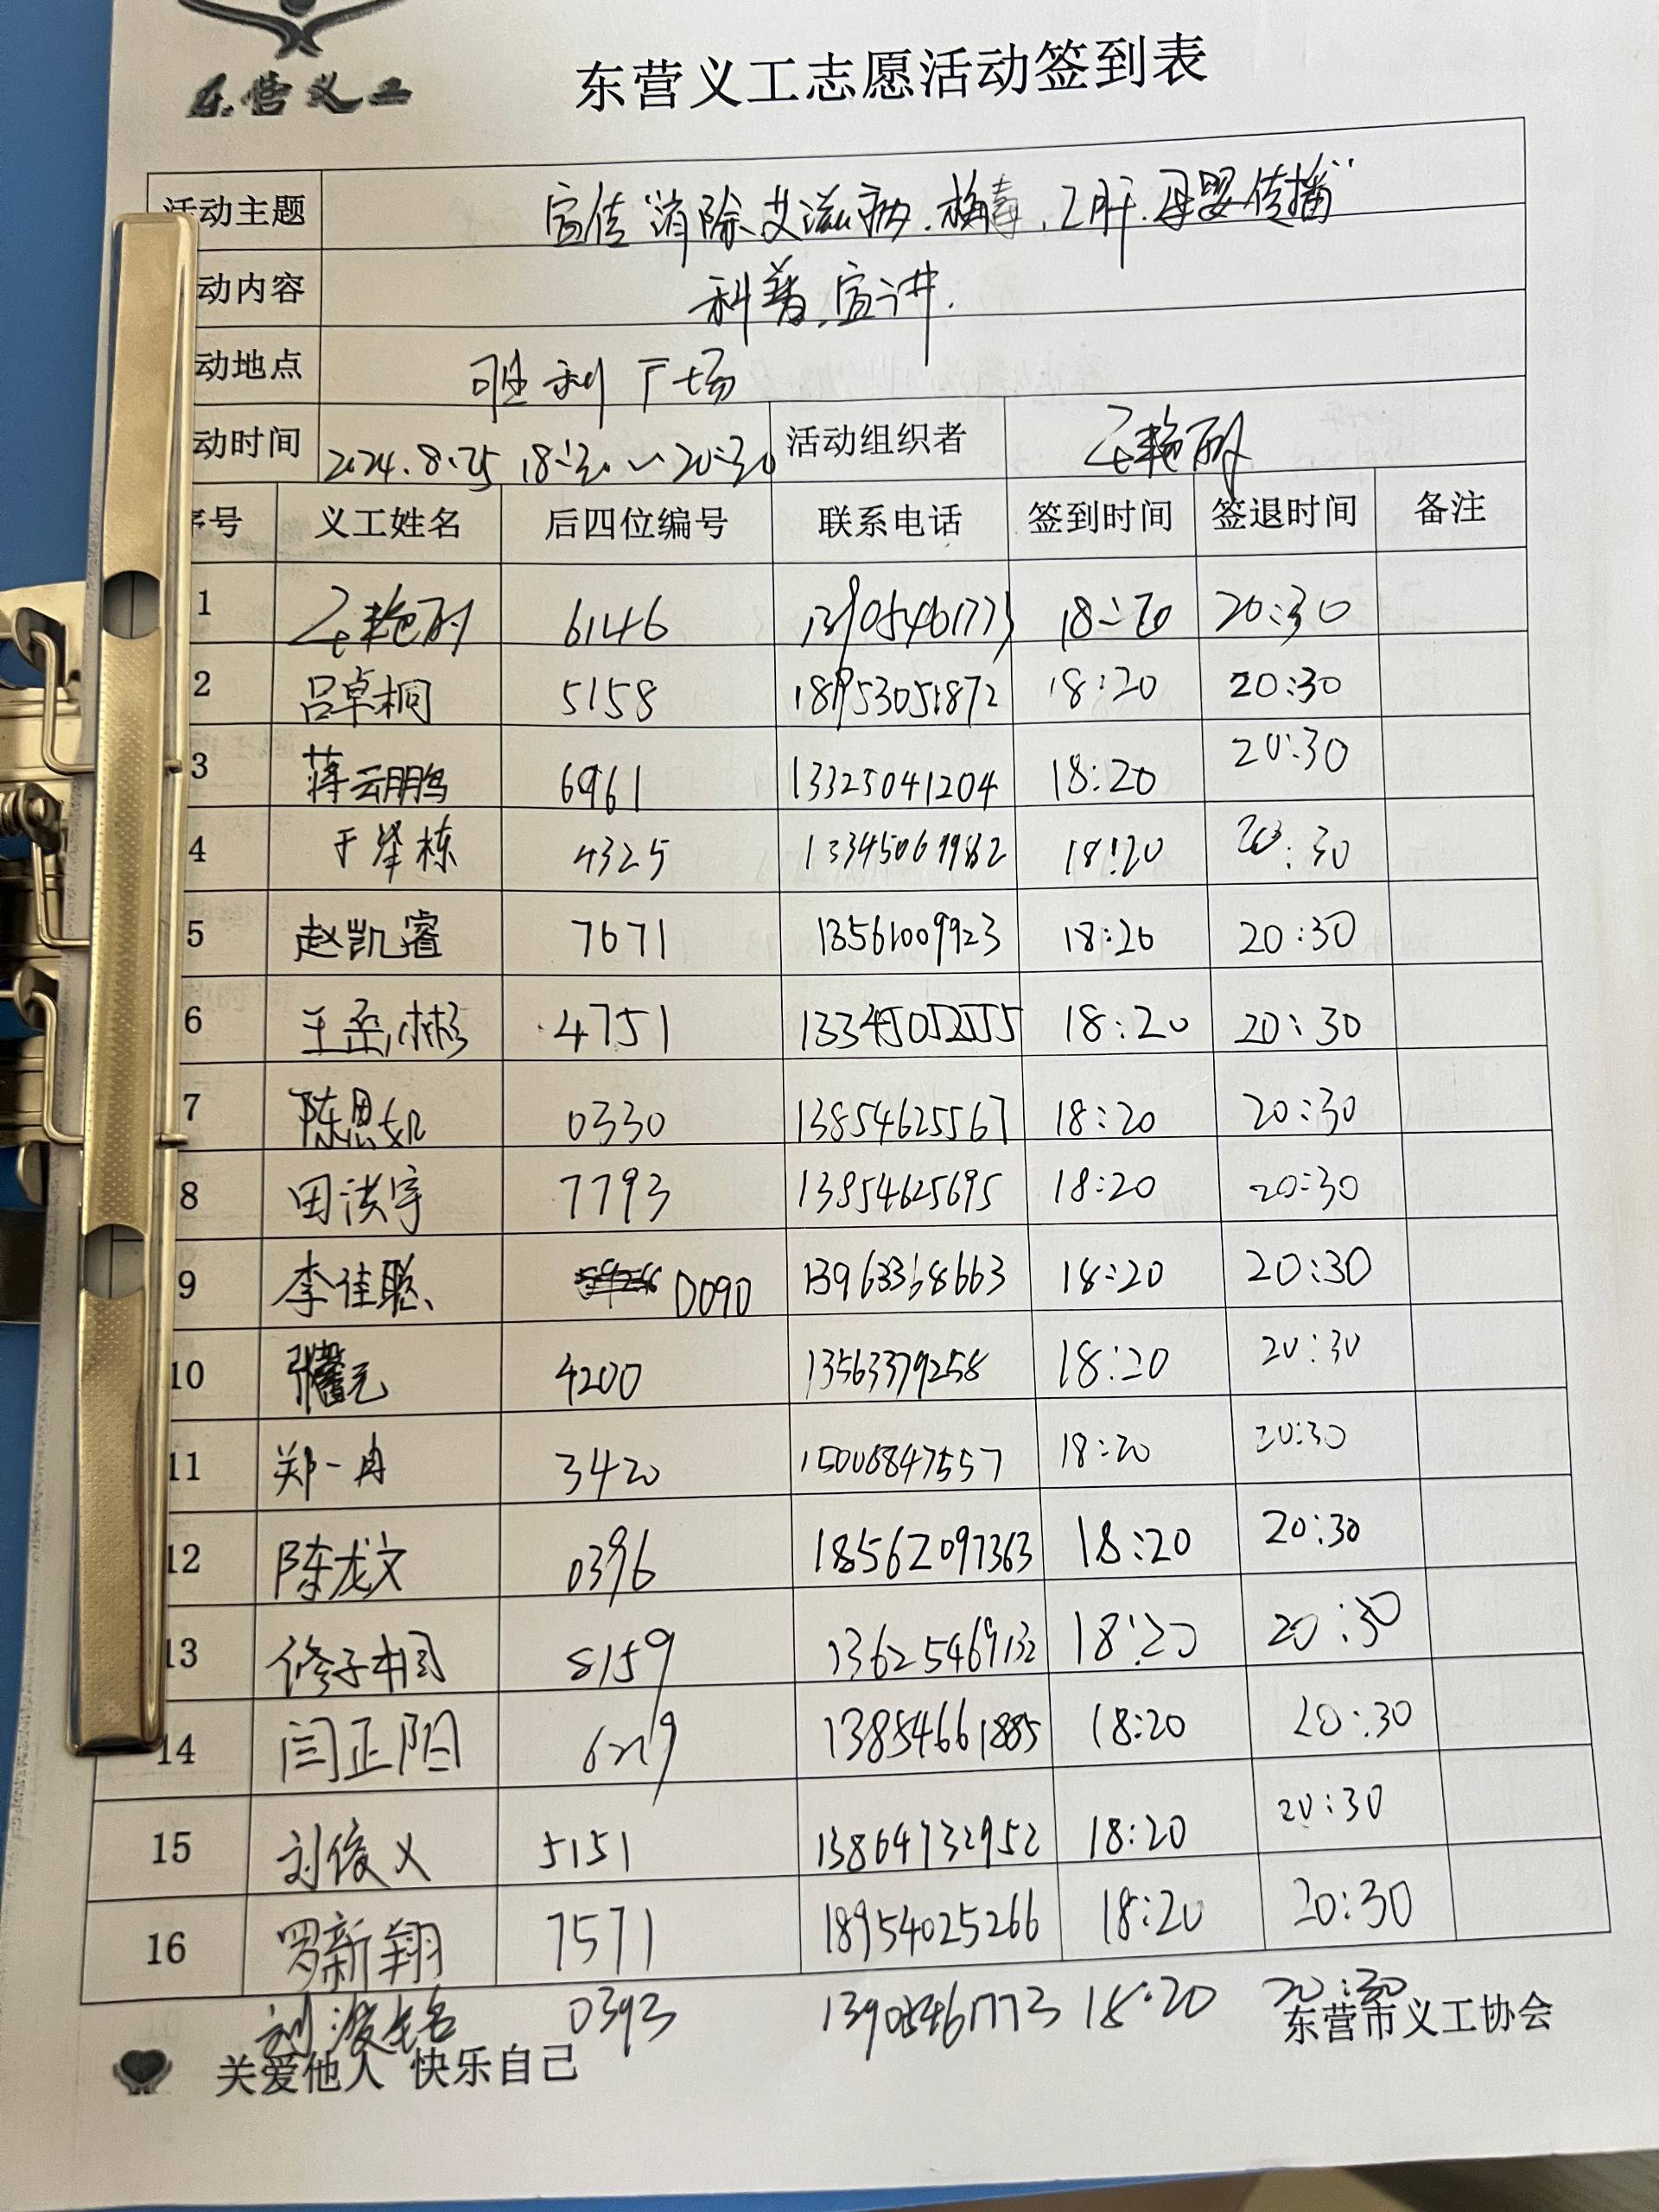 东营义工
东营义工志愿活动签到表
活动主题 宣传"消除艾滋病.梅毒.乙肝.母婴传播"
动内容 科普、宣讲.
动地点 胜利广场
动时间 2024.8.25 18:30~20:30 活动组织者
序号 义工姓名 后四位编号 联系电话 签到时间 签退时间 备注
1 6146 13905461773 18:20 20:30
2 吕卓桐 5158 18953051872 18:20 20:30
3 蒋云鹏 6961 13325041204 18:20 20:30
4 于泽栋 4325 18:20 20:30
5 赵凯睿 7671 13561009923 18:20 20:30
6 4751 13345052555 18:20 20:30
7 陈思如 0330 13854625567 18:20 20:30
8 田洪宇 7793 13854625695 18:20 20:30
9 李佳聪 0090 13963368663 18:20 20:30
10 4200 13563379258 18:20 20:30
11 郑一冉 3420 15006847557 18:20 20:30
12 陈龙文 0396 18562097363 18:20 20:30
13 修子桐 5159 13625469132 18:20 20:30
14 闫正阳 6219 13854661885 18:20 20:30
15 刘俊义 5151 13864732952 18:20 20:30
16 罗新翔 7571 18954025266 18:20 20:30
0393 13905461773 18:20 20:30
关爱他人 快乐自己 东营市义工协会